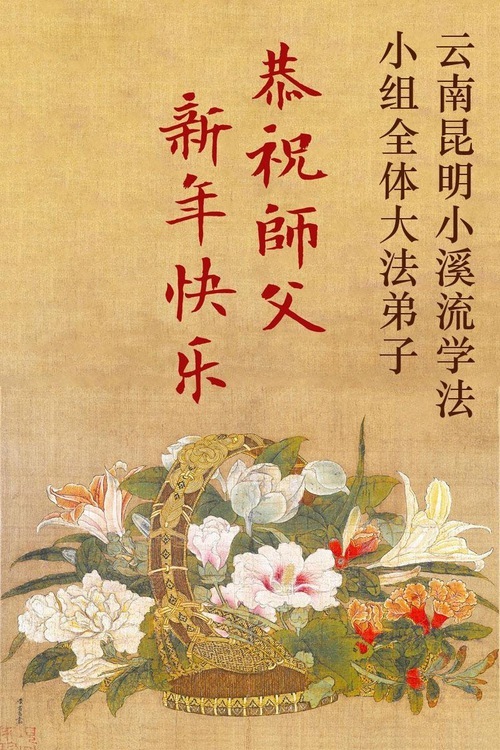 云南昆明小溪流学法
小组全体大法弟子
恭祝師父
新年快乐